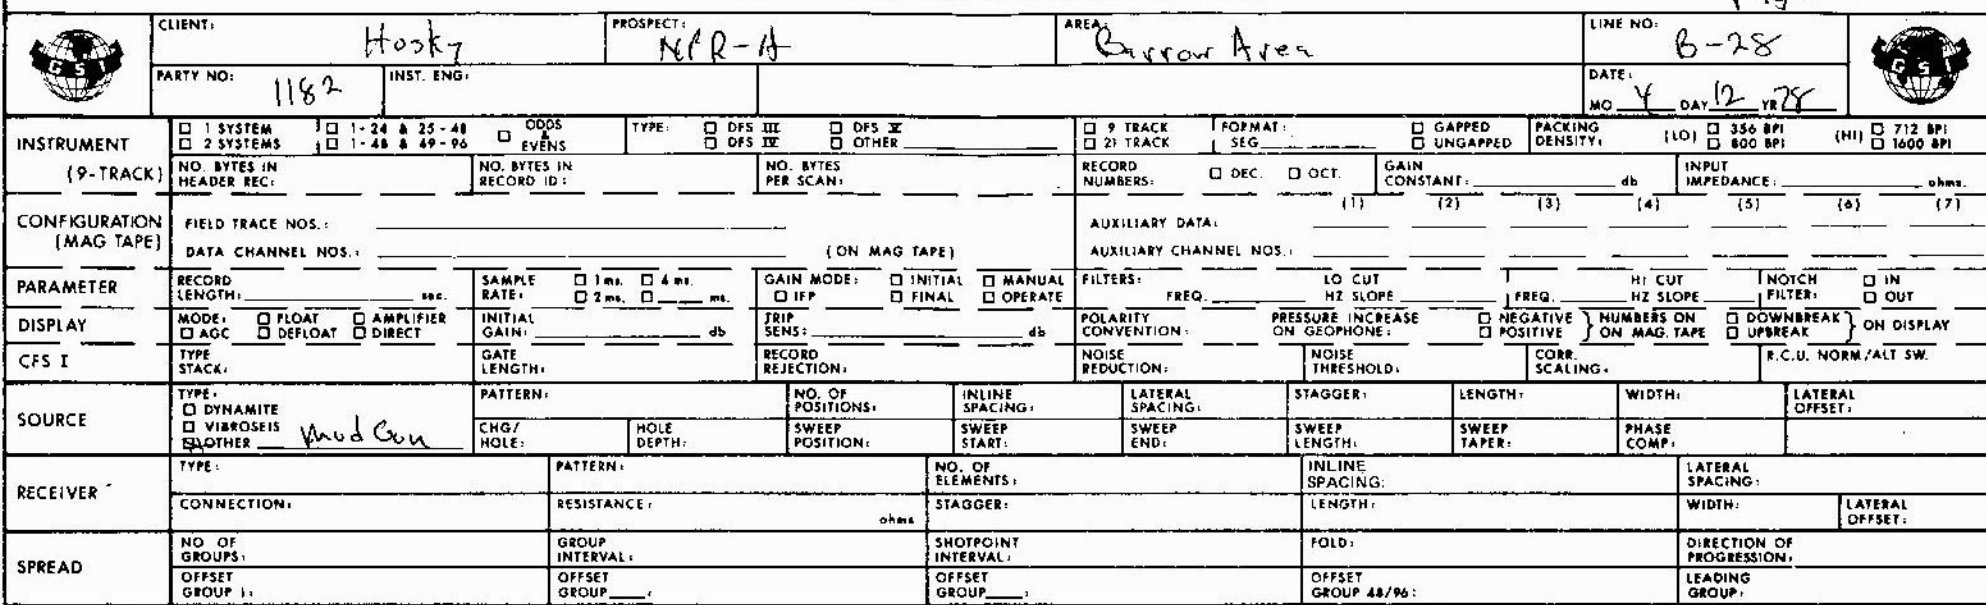 CLIENT: Hosky PROSPECT: NPR-A AREA: Barrow Area LINE NO: B-28
GSI GSI
PARTY NO: 1182 INST. ENG: DATE:
MO 4 DAY 12 YR 78
INSTRUMENT (9-TRACK)
☐ 1 SYSTEM ☐ 1-24 & 25-48 ☐ ODDS & EVENS TYPE: ☐ DFS III ☐ DFS V ☐ 9 TRACK FORMAT: ☐ GAPPED PACKING DENSITY: (LO) ☐ 356 BPI (HI) ☐ 712 BPI
☐ 2 SYSTEMS ☐ 1-48 & 49-96 ☐ DFS IV ☐ OTHER ☐ 21 TRACK SEG ☐ UNGAPPED ☐ 800 BPI ☐ 1600 BPI
NO. BYTES IN HEADER REC: NO. BYTES IN RECORD ID: NO. BYTES PER SCAN: RECORD NUMBERS: ☐ DEC. ☐ OCT. GAIN CONSTANT: db INPUT IMPEDANCE: ohms.
CONFIGURATION (MAG TAPE)
(1) (2) (3) (4) (5) (6) (7)
FIELD TRACE NOS.: AUXILIARY DATA:
DATA CHANNEL NOS.: (ON MAG TAPE) AUXILIARY CHANNEL NOS.:
PARAMETER
RECORD LENGTH: sec. SAMPLE RATE: ☐ 1 ms. ☐ 4 ms. ☐ 2 ms. ☐ ms. GAIN MODE: ☐ INITIAL ☐ MANUAL ☐ IFP ☐ FINAL ☐ OPERATE FILTERS: LO CUT FREQ. HZ SLOPE HI CUT FREQ. HZ SLOPE NOTCH FILTER: ☐ IN ☐ OUT
DISPLAY
MODE: ☐ FLOAT ☐ AMPLIFIER ☐ AGC ☐ DEFLOAT ☐ DIRECT INITIAL GAIN: db TRIP SENS: db POLARITY CONVENTION: PRESSURE INCREASE ON GEOPHONE: ☐ NEGATIVE ☐ POSITIVE } NUMBERS ON ON MAG. TAPE ☐ DOWNBREAK ☐ UPBREAK } ON DISPLAY
CFS I
TYPE STACK: GATE LENGTH: RECORD REJECTION: NOISE REDUCTION: NOISE THRESHOLD: CORR. SCALING: R.C.U. NORM/ALT SW.
SOURCE
TYPE: ☐ DYNAMITE ☐ VIBROSEIS ☒ OTHER Mud Gun
PATTERN: NO. OF POSITIONS: INLINE SPACING: LATERAL SPACING: STAGGER: LENGTH: WIDTH: LATERAL OFFSET:
CHG/HOLE: HOLE DEPTH: SWEEP POSITION: SWEEP START: SWEEP END: SWEEP LENGTH: SWEEP TAPER: PHASE COMP:
RECEIVER
TYPE: PATTERN: NO. OF ELEMENTS: INLINE SPACING: LATERAL SPACING:
CONNECTION: RESISTANCE: ohms STAGGER: LENGTH: WIDTH: LATERAL OFFSET:
SPREAD
NO OF GROUPS: GROUP INTERVAL: SHOTPOINT INTERVAL: FOLD: DIRECTION OF PROGRESSION:
OFFSET GROUP 1: OFFSET GROUP : OFFSET GROUP : OFFSET GROUP 48/96: LEADING GROUP: